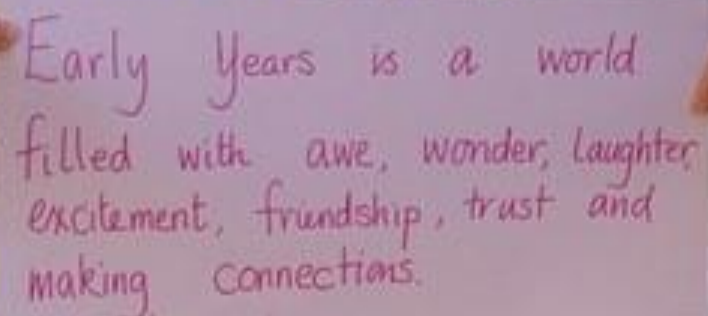 Early Years is a world
filled with awe, wonder, laughter,
excitement, friendship, trust and
making connections.